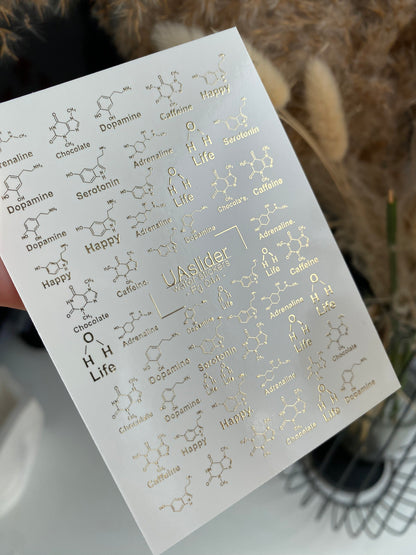 Caffeine
Happy
Dopamine
Adrenaline
Chocolate
Adrenaline
Life
Serotonin
Dopamine
Serotonin
Adrenaline
Life
Chocolate
Caffeine
Dopamine
Happy
Adrenaline
Dopamine
Adrenaline
Happy
Caffeine
UAslider
Life
Caffeine
Chocolate
Adrenaline
Adrenaline
Life
Life
Dopamine
Serotonin
Life
Chocolate
Chocolate
Dopamine
Adrenaline
Dopamine
Caffeine
Happy
Happy
Chocolate
Life